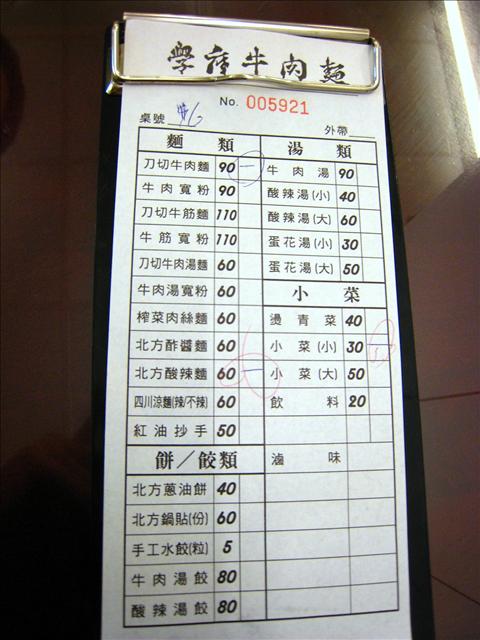 學府牛肉麵
No. 005921
桌號 #6
外帶
麵 類 湯 類
刀切牛肉麵 90 一 牛肉湯 90
牛肉寬粉 90 酸辣湯(小) 40
刀切牛筋麵 110 酸辣湯(大) 60
牛筋寬粉 110 蛋花湯(小) 30
刀切牛肉湯麵 60 蛋花湯(大) 50
牛肉湯寬粉 60 小 菜
榨菜肉絲麵 60 燙青菜 40
北方酢醬麵 60 小菜(小) 30
北方酸辣麵 60 一 小菜(大) 50
四川涼麵(辣/不辣) 60 飲料 20
紅油抄手 50
餅/餃類 滷味
北方蔥油餅 40
北方鍋貼(份) 60
手工水餃(粒) 5
牛肉湯餃 80
酸辣湯餃 80